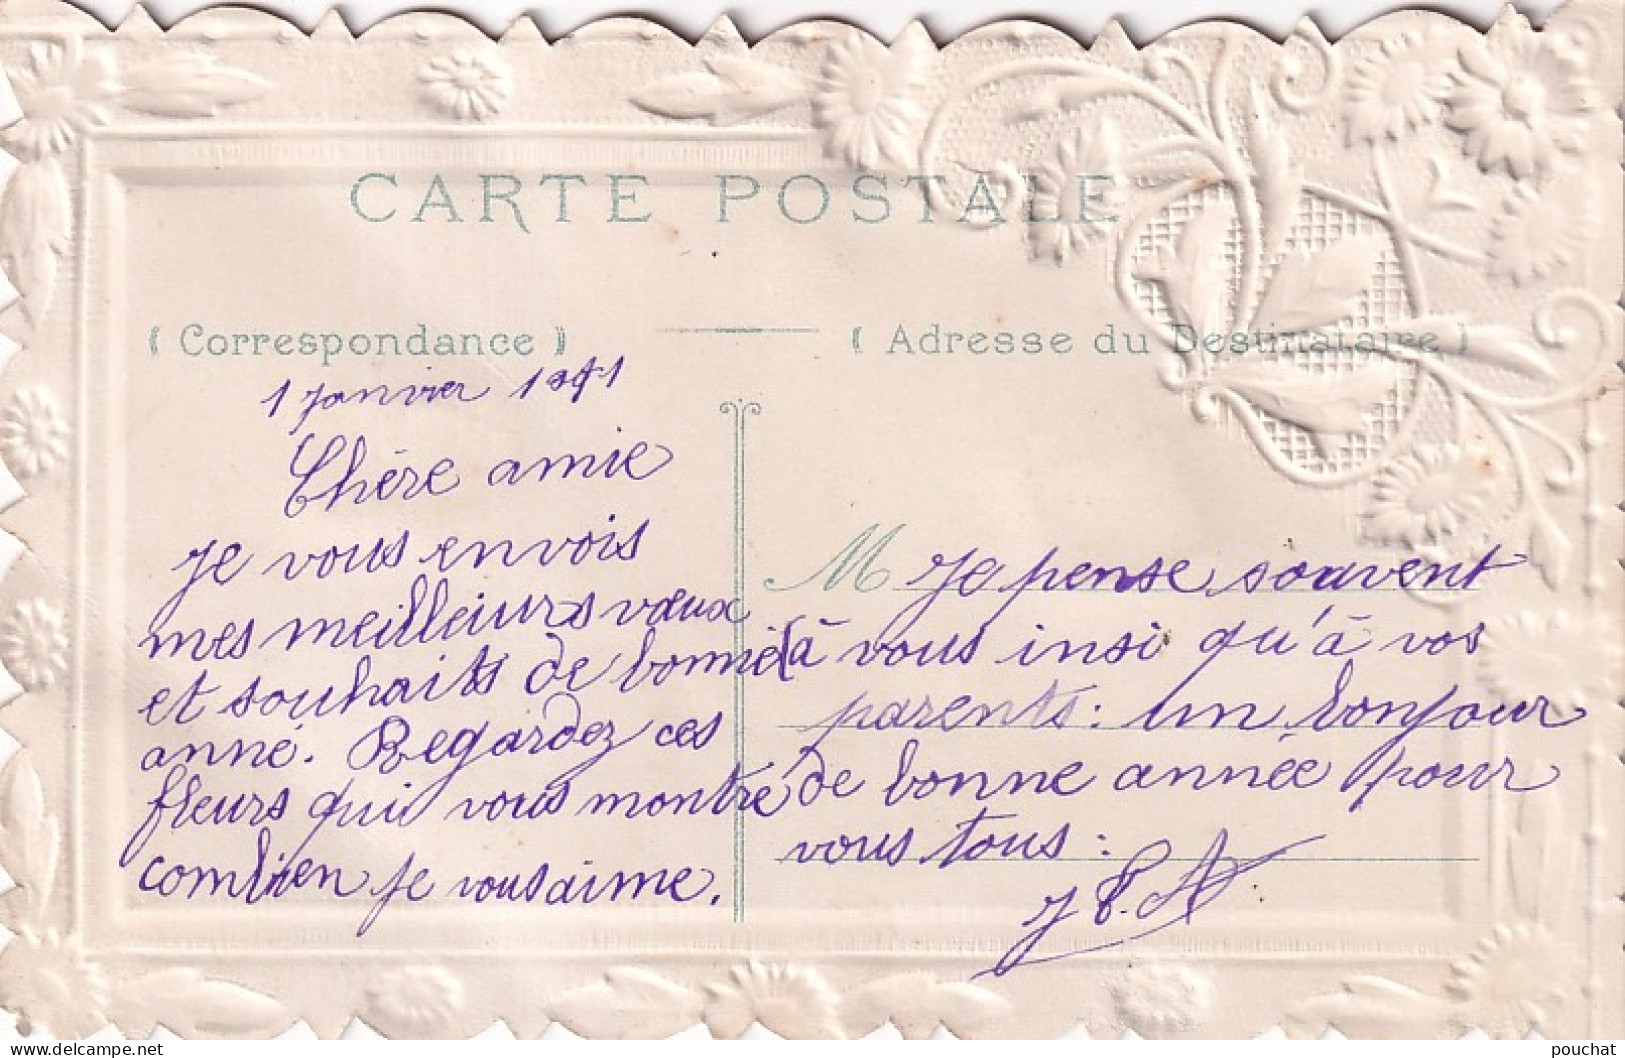 CARTE POSTALE
( Correspondance )
( Adresse du Destinataire )
1 Janvier
Chère amie
Je vous envois
mes meilleurs vœux
et souhaits de bonne
anné. Regardez ces
fleurs qui vous montre
combien je vous aime.
M Je pense souvent
à vous insi qu'à vos
parents : un bonjour
de bonne année pour
vous tous :
delcampe.net
pouchat